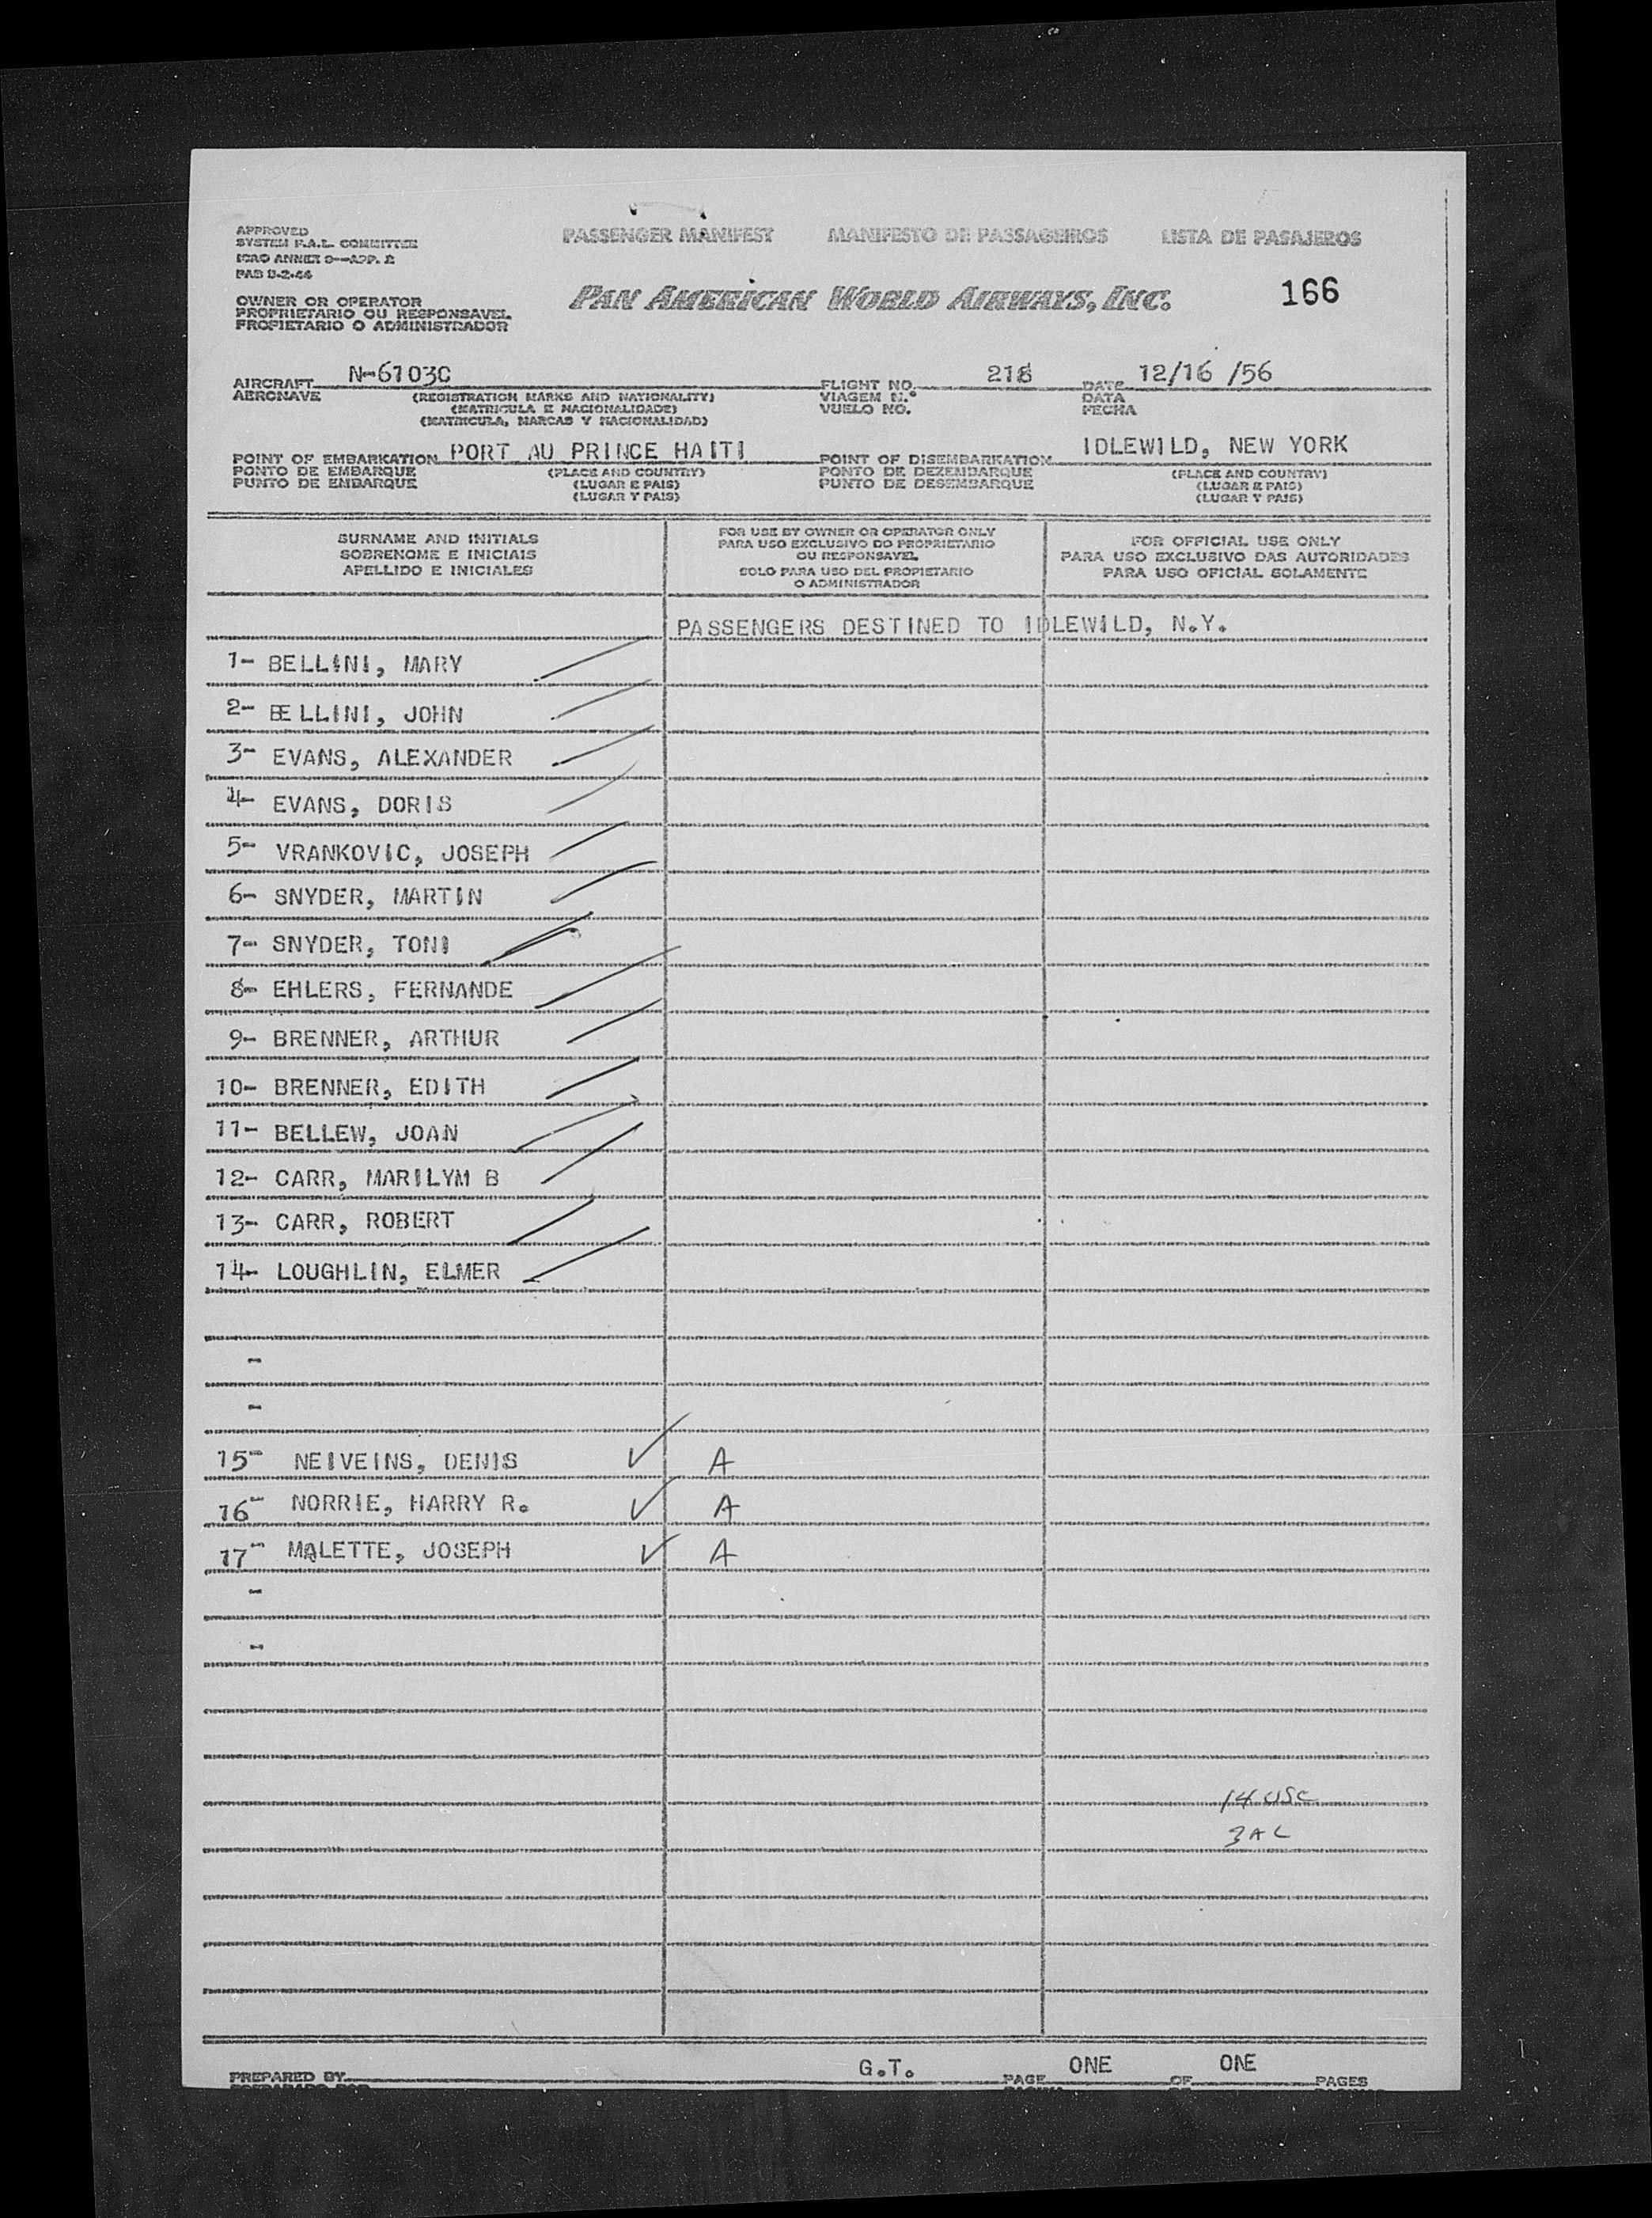 PASSENGER MANIFEST MANIFESTO DE PASSAGEIROS LISTA DE PASAJEROS
APPROVED
SYSTEM F.A.L. COMMITTEE
ICAO ANNEX 9—APP. 2
PAB 9-2-44
PAN AMERICAN WORLD AIRWAYS, INC. 166
OWNER OR OPERATOR
PROPRIETARIO OU RESPONSAVEL
PROPIETARIO O ADMINISTRADOR
AIRCRAFT N-6103C FLIGHT NO. 218 DATE 12/16 /56
AERONAVE (REGISTRATION MARKS AND NATIONALITY) VIAGEM N.° DATA
(MATRICULA E NACIONALIDADE) VUELO NO. FECHA
(MATRICULA, MARCAS Y NACIONALIDAD)
POINT OF EMBARKATION PORT AU PRINCE HAITI POINT OF DISEMBARKATION IDLEWILD, NEW YORK
PONTO DE EMBARQUE (PLACE AND COUNTRY) PONTO DE DEZEMBARQUE (PLACE AND COUNTRY)
PUNTO DE EMBARQUE (LUGAR E PAIS) PUNTO DE DESEMBARQUE (LUGAR E PAIS)
(LUGAR Y PAIS) (LUGAR Y PAIS)
SURNAME AND INITIALS
SOBRENOME E INICIAIS
APELLIDO E INICIALES
FOR USE BY OWNER OR OPERATOR ONLY
PARA USO EXCLUSIVO DO PROPRIETARIO
OU RESPONSAVEL
SOLO PARA USO DEL PROPIETARIO
O ADMINISTRADOR
FOR OFFICIAL USE ONLY
PARA USO EXCLUSIVO DAS AUTORIDADES
PARA USO OFICIAL SOLAMENTE
PASSENGERS DESTINED TO IDLEWILD, N.Y.
1- BELLINI, MARY
2- BELLINI, JOHN
3- EVANS, ALEXANDER
4- EVANS, DORIS
5- VRANKOVIC, JOSEPH
6- SNYDER, MARTIN
7- SNYDER, TONI
8- EHLERS, FERNANDE
9- BRENNER, ARTHUR
10- BRENNER, EDITH
11- BELLEW, JOAN
12- CARR, MARILYM B
13- CARR, ROBERT
14- LOUGHLIN, ELMER
-
-
15- NEIVEINS, DENIS ✓ A
16- NORRIE, HARRY R. ✓ A
17- MALETTE, JOSEPH ✓ A
-
-
14 USC
3 AL
PREPARED BY G.T. PAGE ONE OF ONE PAGES